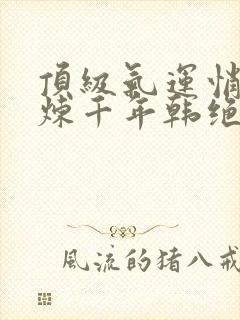 頂級氣運悄
炼千年韩绝
風流的猪八戒